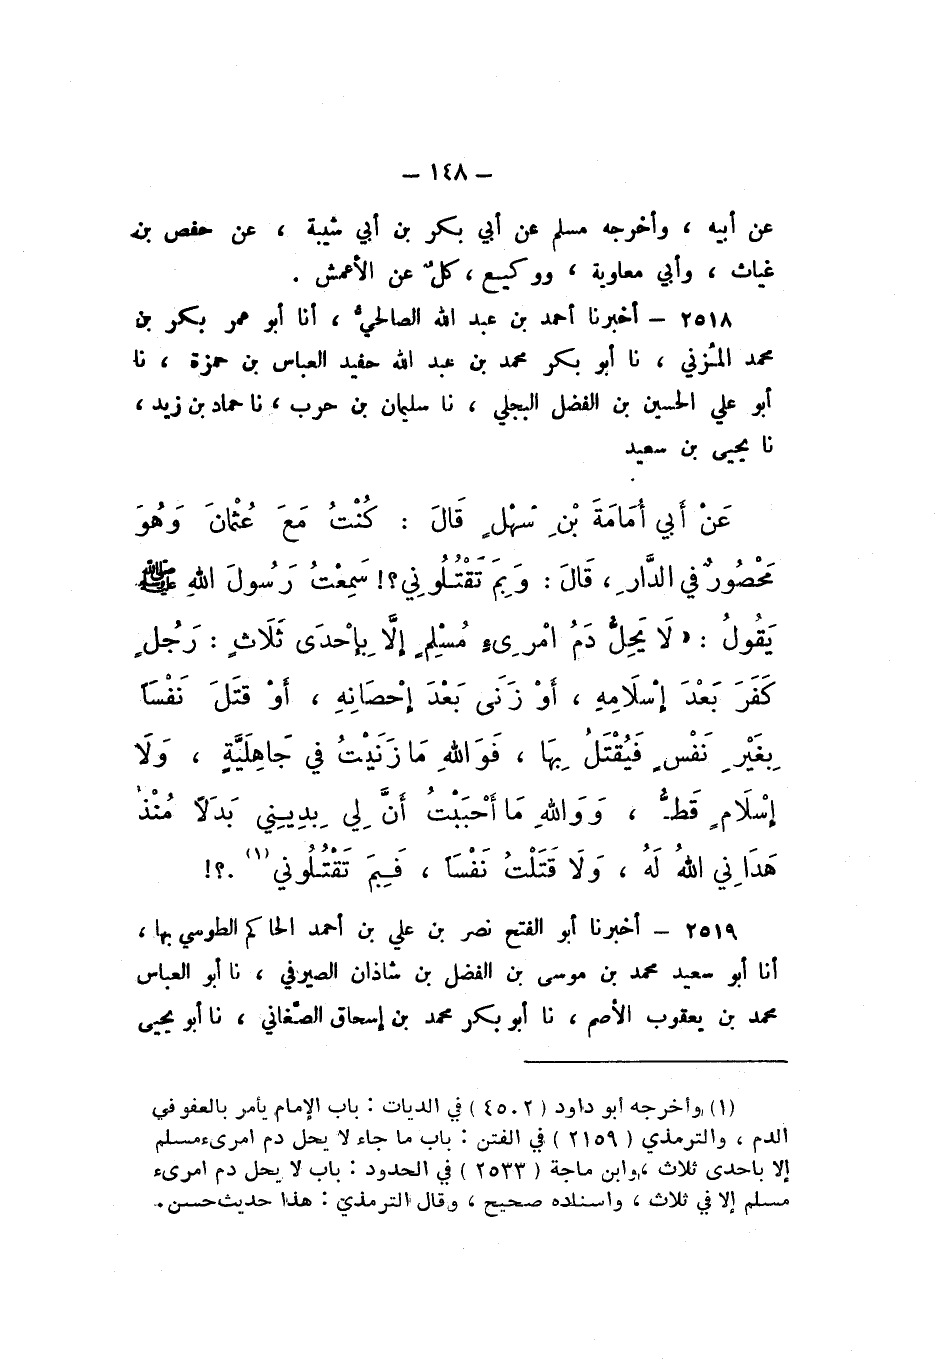 – ١٤٨ –
عن أبيه ، وأخرجه مسلم عن أبي بكر بن أبي شيبة ، عن حفص بن
غياث ، وأبي معاوية ، ووكيع ، كلٌ عن الأعمش .
٢٥١٨ – أخبرنا أحمد بن عبد الله الصالحيُّ ، أنا أبو عمر بكر بن
محمد المُزني ، نا أبو بكر محمد بن عبد الله حفيد العباس بن حمزة ، نا
أبو علي الحسين بن الفضل البجلي ، نا سليمان بن حرب ، نا حماد بن زيد ،
نا يحيى بن سعيد
عَنْ أَبي أُمَامَةَ بْنِ سَهْلٍ قَالَ : كُنْتُ مَعَ عُثْمَانَ وَهُوَ
مَحْصُورٌ في الدَّارِ ، قَالَ : وَبِمَ تَقْتُلُونِي؟! سَمِعْتُ رَسُولَ اللهِ ﷺ
يَقُولُ : « لَا يَحِلُّ دَمُ امْرِىءٍ مُسْلِمٍ إِلَّا بِإِحْدَى ثَلَاثٍ : رَجُلٍ
كَفَرَ بَعْدَ إِسْلَامِهِ ، أَوْ زَنَى بَعْدَ إِحْصَانِهِ ، أَوْ قَتَلَ نَفْسَاً
بِغَيْرِ نَفْسٍ فَيُقْتَلُ بِهَا ، فَوَاللهِ مَا زَنَيْتُ في جَاهِلَيَّةٍ ، وَلَا
إِسْلَامٍ قَطُّ ، وَوَاللهِ مَا أَحْبَبْتُ أَنَّ لِي بِدِينِي بَدَلاً مُنْذُ
هَدَانِي اللهُ لَهُ ، وَلَا قَتَلْتُ نَفْسَاً ، فَبِمَ تَقْتُلُونِي (١) .؟!
٢٥١٩ – أخبرنا أبو الفتح نصر بن علي بن أحمد الحاكم الطوسي بها ،
أنا أبو سعيد محمد بن موسى بن الفضل بن شاذان الصيرفي ، نا أبو العباس
محمد بن يعقوب الأصم ، نا أبو بكر محمد بن إسحاق الصَّغاني ، نا أبو يحيى
(١) وأخرجه أبو داود ( ٤٥٠٢ ) في الديات : باب الإمام يأمر بالعفو في
الدم ، والترمذي ( ٢١٥٩ ) في الفتن : باب ما جاء لا يحل دم امرىء مسلم
إلا باحدى ثلاث ، وابن ماجة ( ٢٥٣٣ ) في الحدود : باب لا يحل دم امرىء
مسلم إلا في ثلاث ، واسناده صحيح ، وقال الترمذي : هذا حديث حسن .